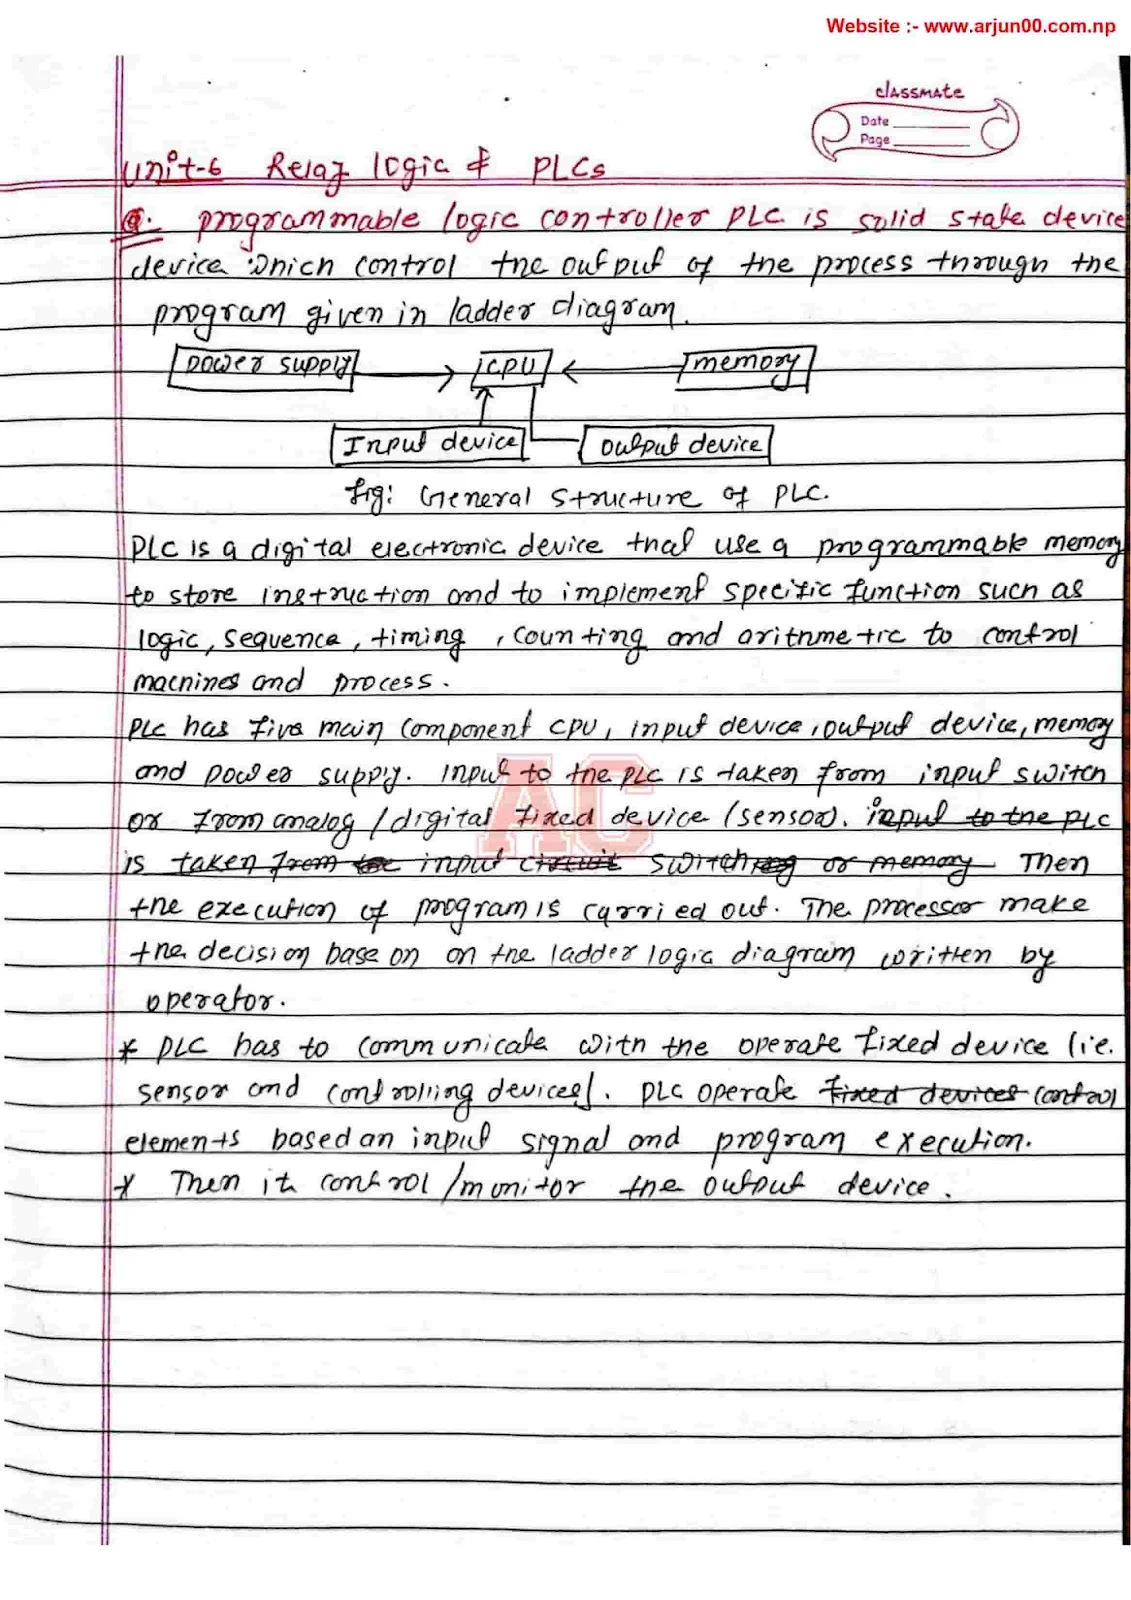 Website :- www.arjun00.com.np
classmate
Date
Page
Unit-6 Relay logic & PLCs
Q. programmable logic controller PLC is solid state device
device which control the output of the process through the
program given in ladder diagram.
power supply CPU memory
Input device output device
fig: General structure of PLC.
PLC is a digital electronic device that use a programmable memory
to store instruction and to implement specific function such as
logic, sequence, timing, counting and arithmetic to control
machines and process.
PLC has five main component CPU, input device, output device, memory
and power supply. Input to the PLC is taken from input switch
or from analog/digital fixed device (sensor). input to the PLC
is taken from the input circuit switching or memory Then
the execution of program is carried out. The processor make
the decision base on on the ladder logic diagram written by
operator.
* PLC has to communicate with the operate fixed device (i.e.
sensor and controlling devices). PLC operate fixed devices control
elements based an input signal and program execution.
* Then it control/monitor the output device.
AC